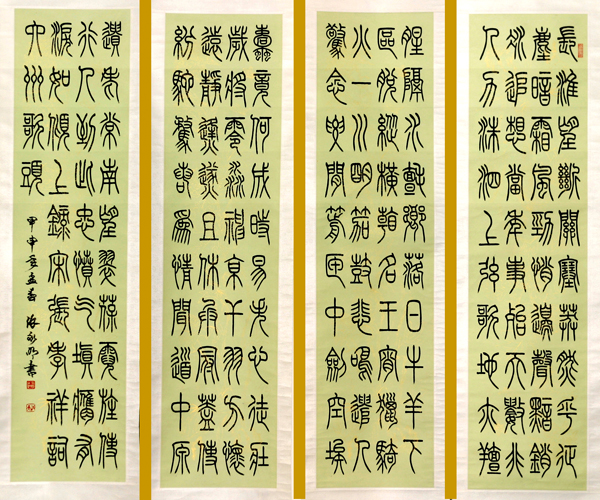 長淮望斷關塞莽然平征
塵暗霜風勁悄邊聲黯銷
凝追想當年事殆天數非
人力洙泗上弦歌地亦羶
腥隔水氈鄉落日牛羊下
區脫縱橫看名王宵獵騎
火一川明笳鼓悲鳴遣人
驚念腰間箭匣中劍空埃
蠹竟何成時易失心徒壯
歲將零渺神京干羽方懷
遠靜烽燧且休兵冠蓋使
紛馳騖若為情聞道中原
遺老常南望翠葆霓旌使
行人到此忠憤氣填膺有
淚如傾上錄宋張孝祥詞
六州歌頭
甲申年孟春